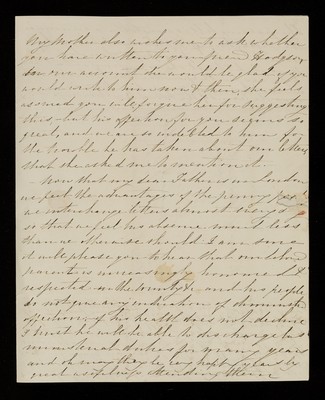 My Mother also wishes me to ask whether
you have written to your friend Hodgson
on our account she would be glad if you
would write him now & then, she feels
assured you will forgive her for suggesting
this, but his affection for you seems so
great, and we are so indebted to him for
the trouble he has taken about our letters
that she asked me to mention it
Now that my dear Father is in London
we feel the advantages of the penny post
we interchange letters almost every day
so that we feel his absence much less
than we otherwise should I am sure
it will please you to hear that our beloved
parent is increasingly honoured &
respected in the ministry, and his people
do not give any indication of diminished
affection, if his health does not decline
I trust he will be able to discharge his
ministerial duties for many years
and oh may they be very happy years by
great usefulness attending them